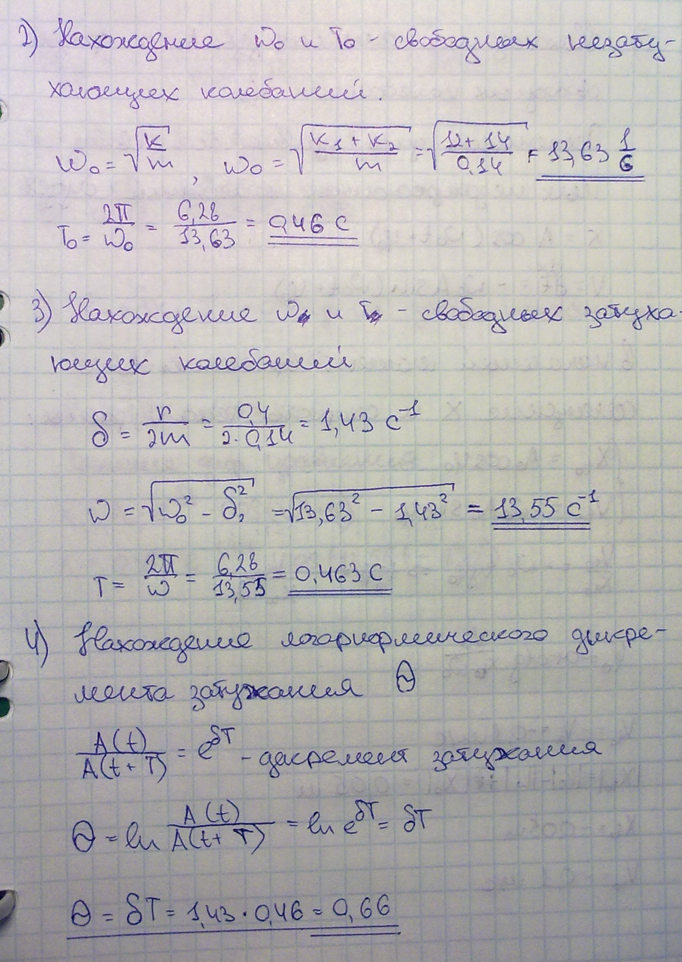 2) Нахождение ω₀ и T₀ - свободных незату-
хающих колебаний.
ω₀ = √(k/m), ω₀ = √((k₁ + k₂)/m) = √((12 + 14)/0,14) = 13,63 1/б
T₀ = 2π/ω₀ = 6,28/13,63 = 0,46 с
3) Нахождение ω и T - свободных затуха-
ющих колебаний
δ = r/2m = 0,4/(2·0,14) = 1,43 с⁻¹
ω = √(ω₀² - δ²) = √(13,63² - 1,43²) = 13,55 с⁻¹
T = 2π/ω = 6,28/13,55 = 0,463 с
4) Нахождение логарифмического дикре-
мента затухания Θ
A(t)/A(t+T) = e^δT - дикремент затухания
Θ = ln A(t)/A(t+T) = ln e^δT = δT
Θ = δT = 1,43 · 0,46 = 0,66